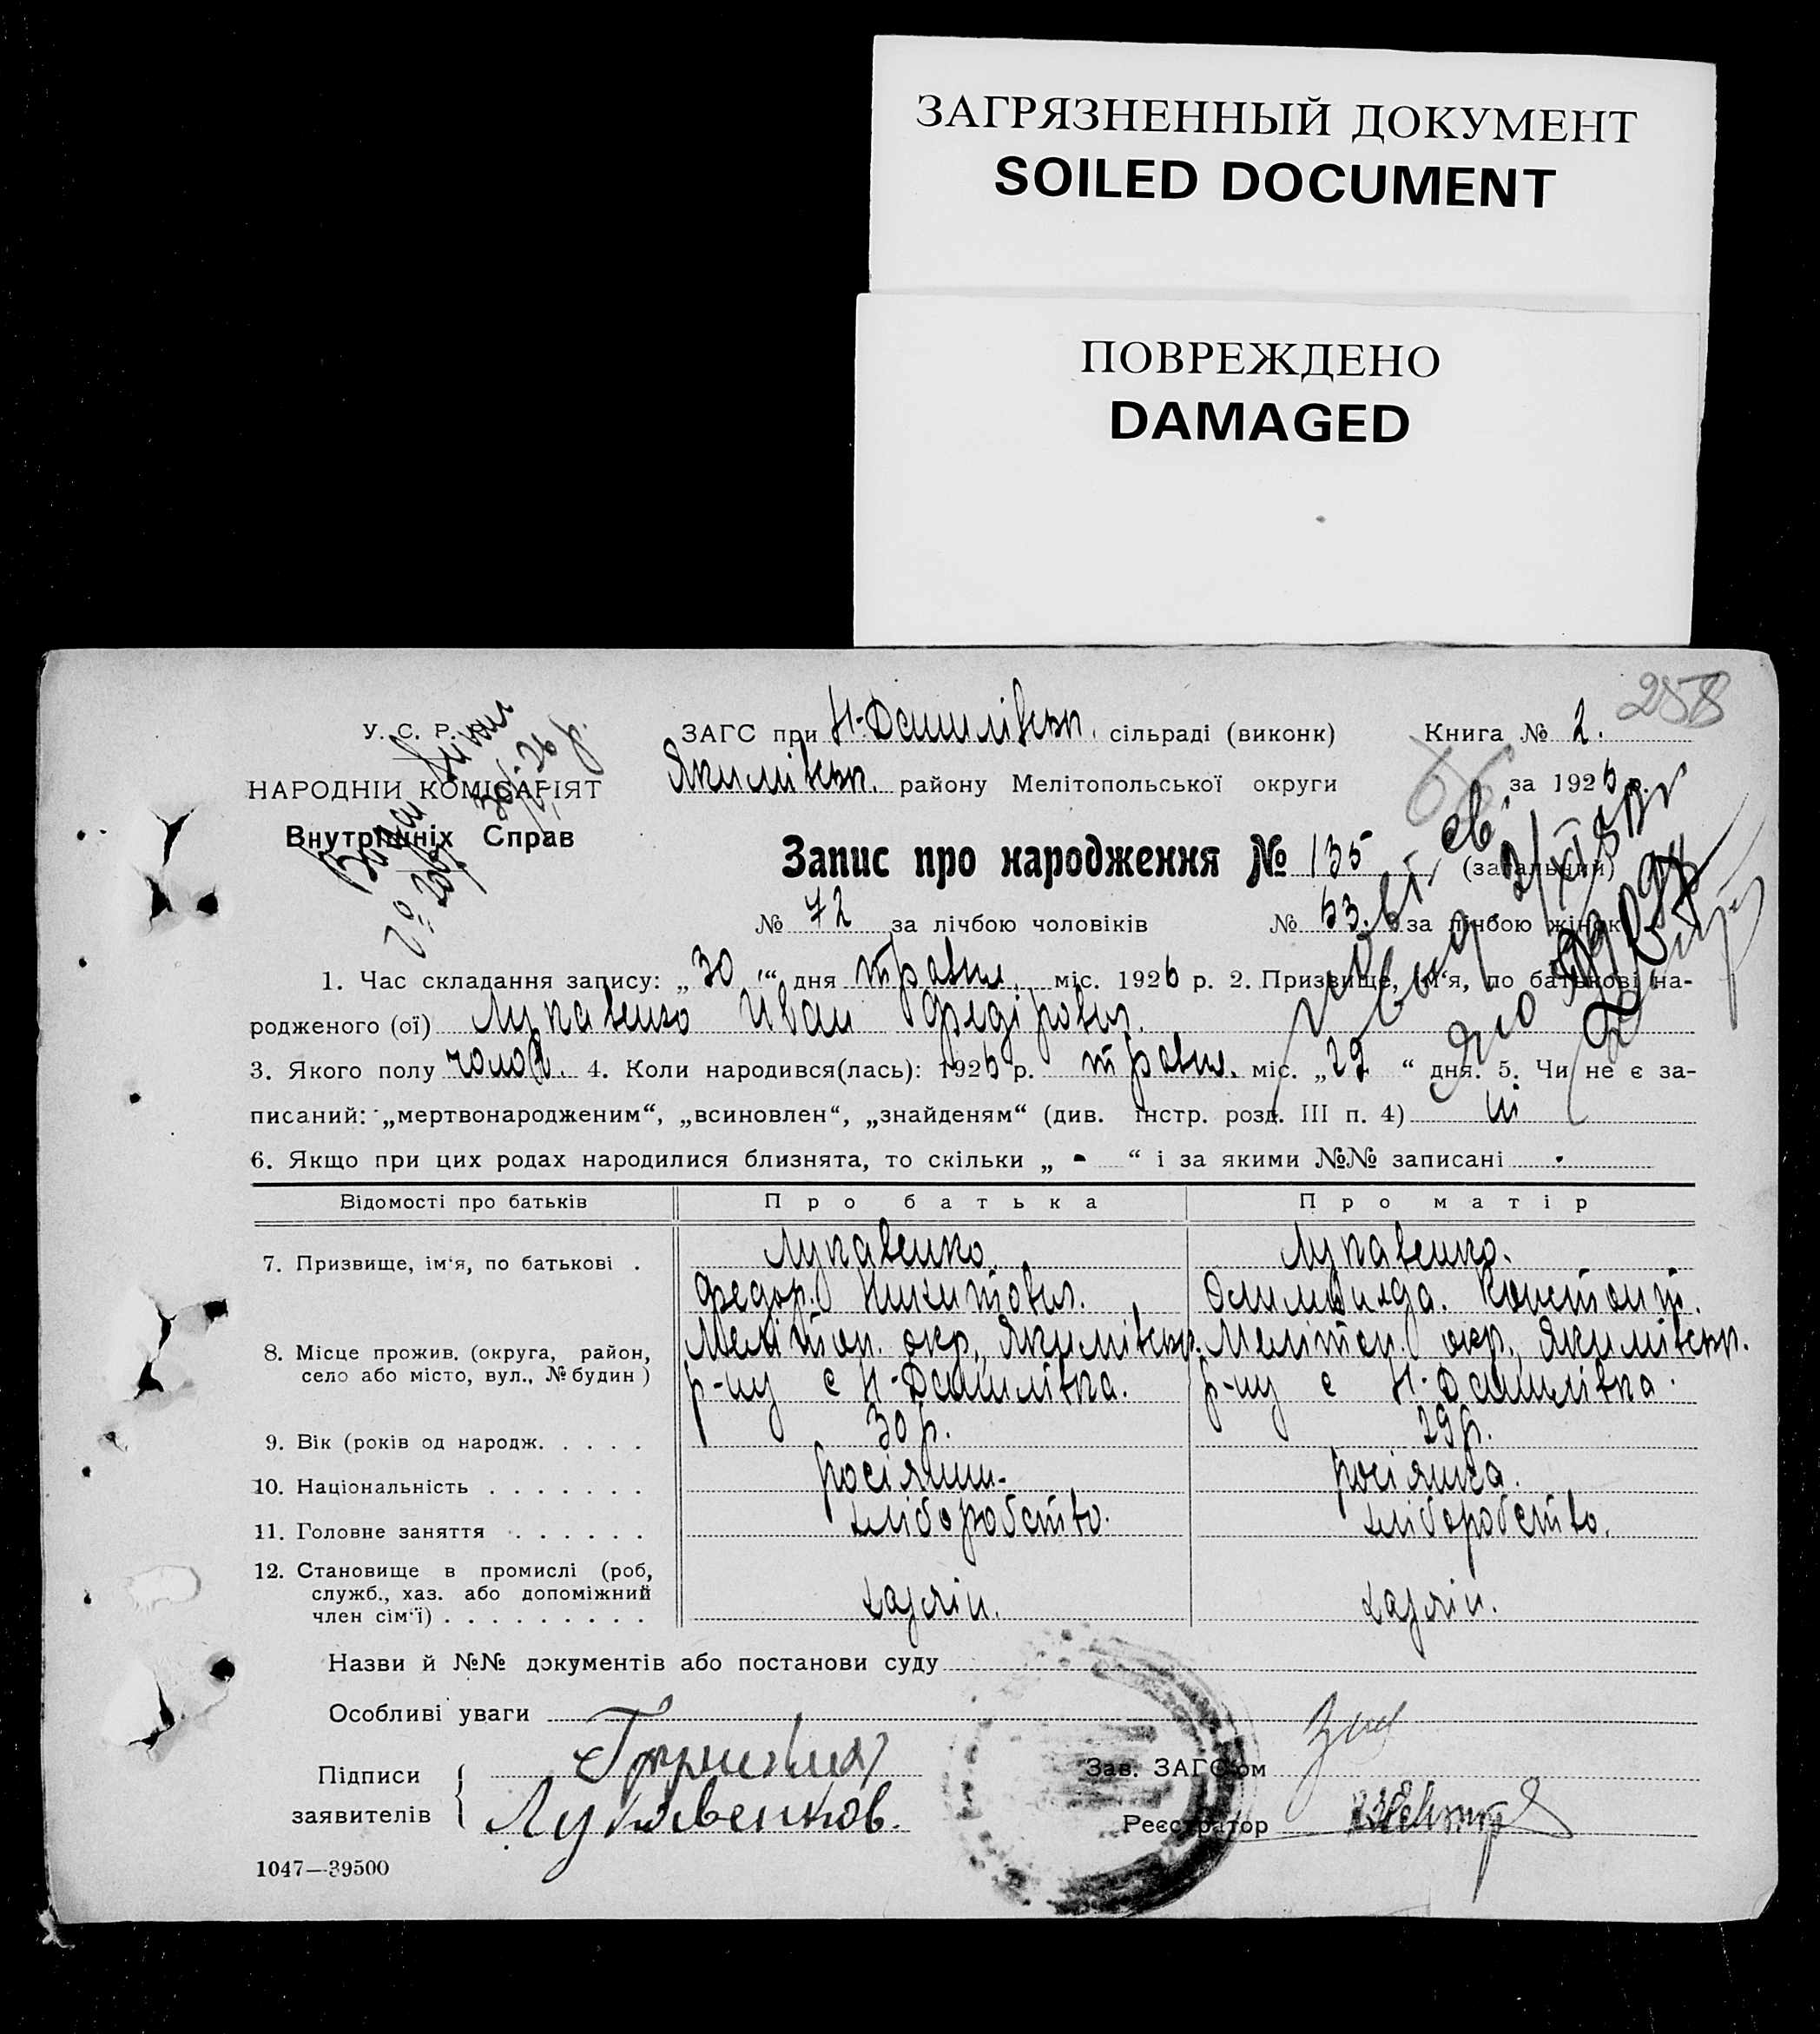 ЗАГРЯЗНЕННЫЙ ДОКУМЕНТ
SOILED DOCUMENT
ПОВРЕЖДЕНО
DAMAGED
258
У. С. Р. Р.
НАРОДНІЙ КОМІСАРІЯТ
Внутрішніх Справ
ЗАГС при Н-Данилівськ. сільраді (виконк)
Якимівськ. району Мелітопольської округи
Книга № 2.
за 1926 р.
Запис про народження № 135 (загальний)
№ 72 за лічбою чоловіків № 63. за лічбою жінок
1. Час складання запису: „30“ дня травня міс. 1926 р. 2. Призвище, ім‘я, по батькові на-
родженого (ої) Лукавенко Иван Федірович.
3. Якого полу чолов. 4. Коли народився(лась): 1926 р. травня. міс. „29“ дня. 5. Чи не є за-
писаний: „мертвонародженим“, „всиновлен“, „знайденям“ (див. інстр. розд. III п. 4) ні
6. Якщо при цих родах народилися близнята, то скільки „ - “ і за якими №№ записані
Відомості про батьків Про батька Про матір
7. Призвище, ім‘я, по батькові . Лукавенко. Лукавенко.
Федор. Никитович. Констант.
8. Місце прожив. (округа, район, Меліт оп. окр., Якимівськ. Мелітоп. окр., Якимівськ.
село або місто, вул., № будин ) р-ну с Н-Данилівка. р-ну с Н-Данилівка.
9. Вік (років од народж. . . . . 30 р. 29 р.
10. Національність . . . . . . . росіянин- росіянка.
11. Головне заняття . . . . . . хліборобство. хліборобство.
12. Становище в промислі (роб,
служб., хаз. або допоміжний хазяін. хазяін.
член сім‘ї) . . . . . . . . .
Назви й №№ документів або постанови суду
Особливі уваги
Підписи
заявителів Лукавенков.
Зав. ЗАГС‘ом
Реєстратор
1047—39500